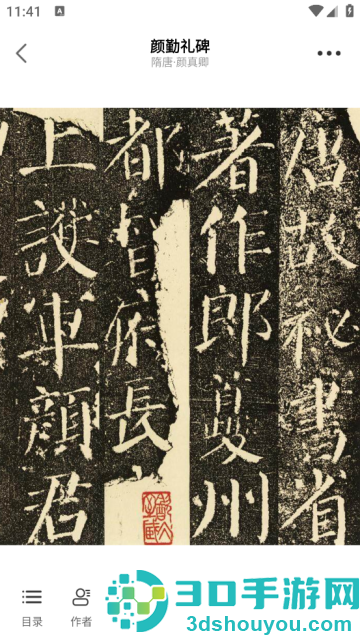 11:41
A
颜勤礼碑
隋唐·颜真卿
唐故祕書省
著作郎夔州
都督府長
上護軍顏君
目录
作者
3D手游网
3dshouyou.com